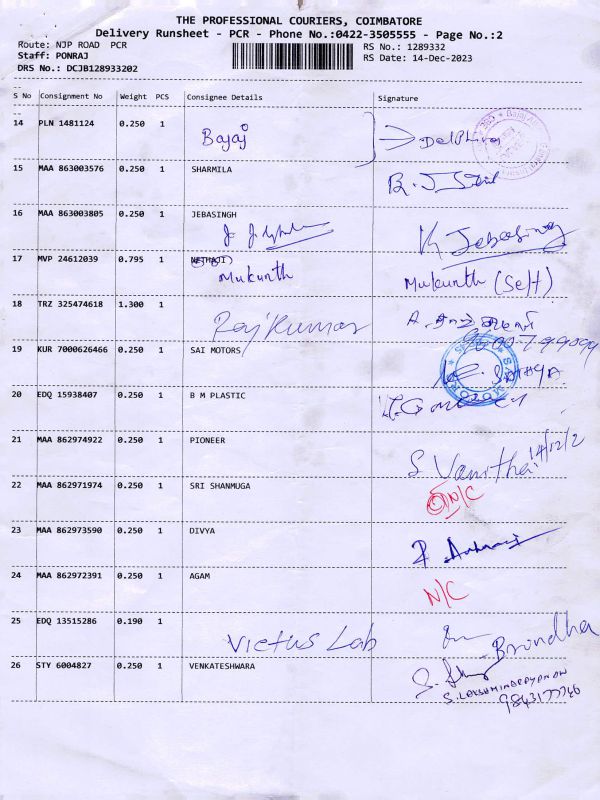 THE PROFESSIONAL COURIERS, COIMBATORE
Delivery Runsheet - PCR - Phone No.:0422-3505555 - Page No.:2
Route: NJP ROAD PCR RS No.: 1289332
Staff: PONRAJ RS Date: 14-Dec-2023
DRS No.: DCJB128933202
S No Consignment No Weight PCS Consignee Details Signature
14 PLN 1481124 0.250 1 Bajaj
15 MAA 863003576 0.250 1 SHARMILA
16 MAA 863003805 0.250 1 JEBASINGH K Jebasing
17 MVP 24612039 0.795 1 NETHAJI
Mukunth Mukunth (Self)
18 TRZ 325474618 1.300 1 Rajkumar
19 KUR 7000626466 0.250 1 SAI MOTORS
20 EDQ 15938407 0.250 1 B M PLASTIC
21 MAA 862974922 0.250 1 PIONEER S Vanitha 14/12/2
22 MAA 862971974 0.250 1 SRI SHANMUGA N/C
23 MAA 862973590 0.250 1 DIVYA
24 MAA 862972391 0.250 1 AGAM N/C
25 EDQ 13515286 0.190 1 Victus Lab Brindha
26 STY 6004827 0.250 1 VENKATESHWARA
S. LAKSHMINARAYANAN
9843177746